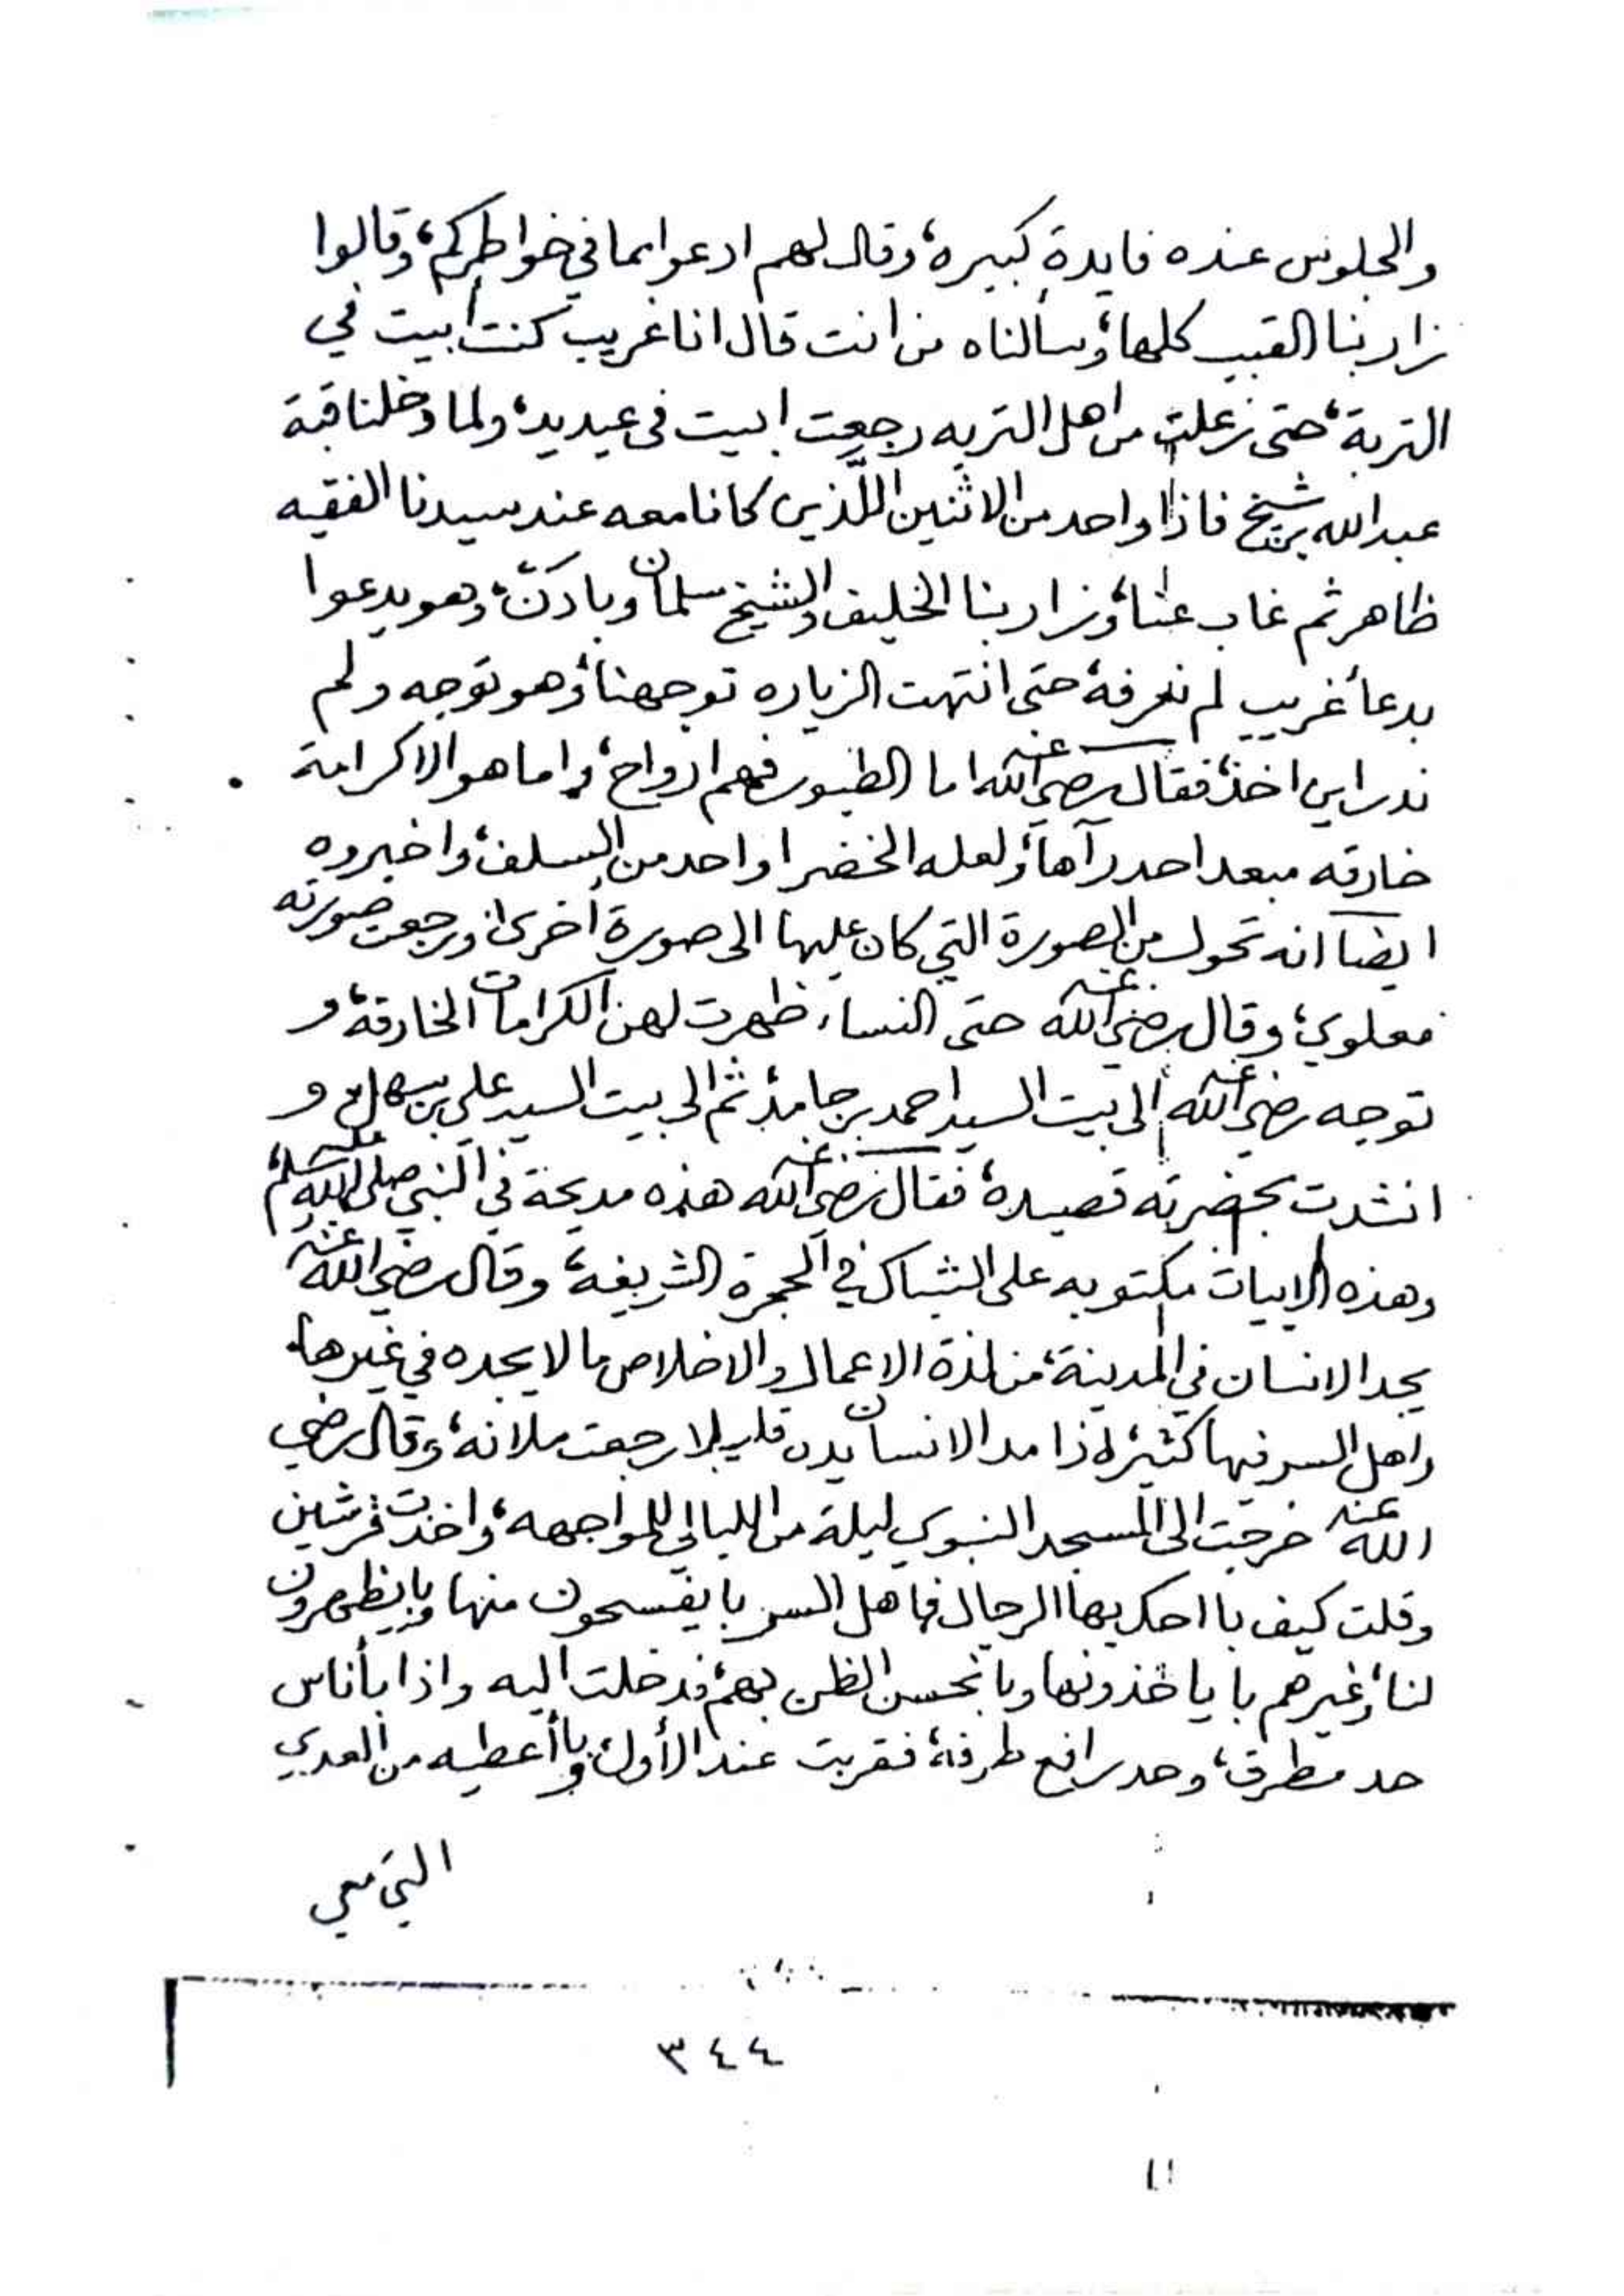 والجلوس عنده فايدة كبيره، وقال لهم ادعوا بما في خواطركم، وقالوا
زار بنا القبب كلها، وسألناه من انت قال انا غريب كنت أبيت في
التربة، حتى زعلت من اهل التربه رجعت ابيت في عيديد، ولما دخلنا قبة
عبدالله بن شيخ فاذا واحد من الاثنين اللَّذين كانا معه عند سيدنا الفقيه
ظاهر ثم غاب عنا، وزار بنا الخليف والشيخ سلمان وبادكن، وهو يدعوا
بدعاً غريب لم نعرفه، حتى انتهت الزياره توجهنا، وهو توجه ولم
ندر اين اخذ، فقال رضي الله عنه اما الطيور فهم ارواح، واما هو الا كرامة
خارقه مبعد احد رآها، ولعله الخضر او احد من السلف، واخبروه
ايضا انه تحول من الصورة التي كان عليها الى صورة أخرى، ورجعت صورته
معلوي، وقال رضي الله عنه حتى النساء ظهرت لهن الكرامات الخارقه، و
توجه رضي الله عنه الى بيت السيد احمد بن حامد، ثم الى بيت السيد علي بن سهل، و
انشدت بحضرته قصيده، فقال رضي الله عنه هذه مديحة في النبي صلى الله عليه وسلم،
وهذه الابيات مكتوبه على الشباك في الحجرة الشريفه، وقال رضي الله عنه
يجد الانسان في المدينة، من لذة الاعمال والاخلاص ما لا يجده في غيرها،
واهل السر فيها كثير، اذا مد الانسان يده قليلا رجعت ملانه، وقال رضي
الله عنه خرجت الى المسجد النبوي ليلة من الليالي للمواجهه، واخذت قرشين
وقلت كيف با احك بها الرجال فاهل السر با يفسحون منها وبا يظهرون
لنا، وغيرهم با ياخذونها وبا نحسن الظن بهم، فدخلت اليه واذا بأناس
حد مطرق، وحد رافع طرفه، فقربت عند الأول، وبا أعطيه من العدي
التي معي
٣٤٤